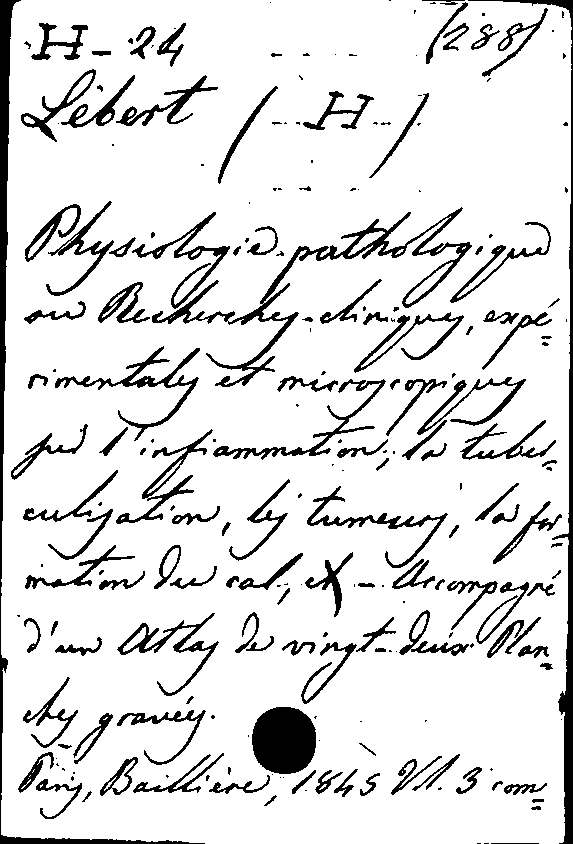 H-24 (288)
Lébert (H)
Physiologie pathologique
ou Recherches cliniques, expé=
rimentales et microscopiques
sur l'inflammation, la tuber=
culisation, les tumeurs, la for=
mation du cal, etc - Accompagné
d'un Atlas de vingt-deux Plan=
ches gravées.
Paris, Baillière, 1845 Vl. 3 com=